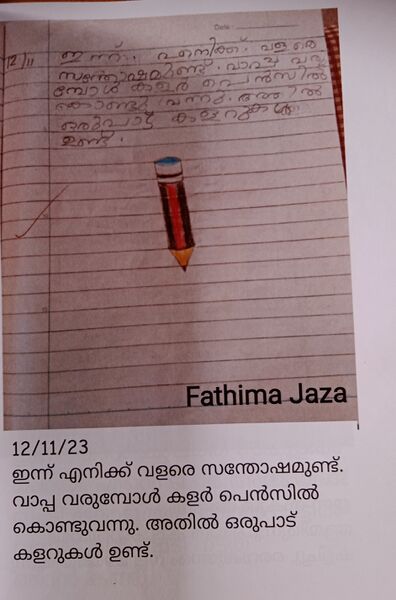 Date :
12/11 ഇന്ന് എനിക്ക് വളരെ
സന്തോഷമുണ്ട്. വാപ്പ വരു
മ്പോൾ കളർ പെൻസിൽ
കൊണ്ടു വന്നു. അതിൽ
ഒരുപാട് കളറുകൾ
ഉണ്ട്.
Fathima Jaza
12/11/23
ഇന്ന് എനിക്ക് വളരെ സന്തോഷമുണ്ട്.
വാപ്പ വരുമ്പോൾ കളർ പെൻസിൽ
കൊണ്ടുവന്നു. അതിൽ ഒരുപാട്
കളറുകൾ ഉണ്ട്.